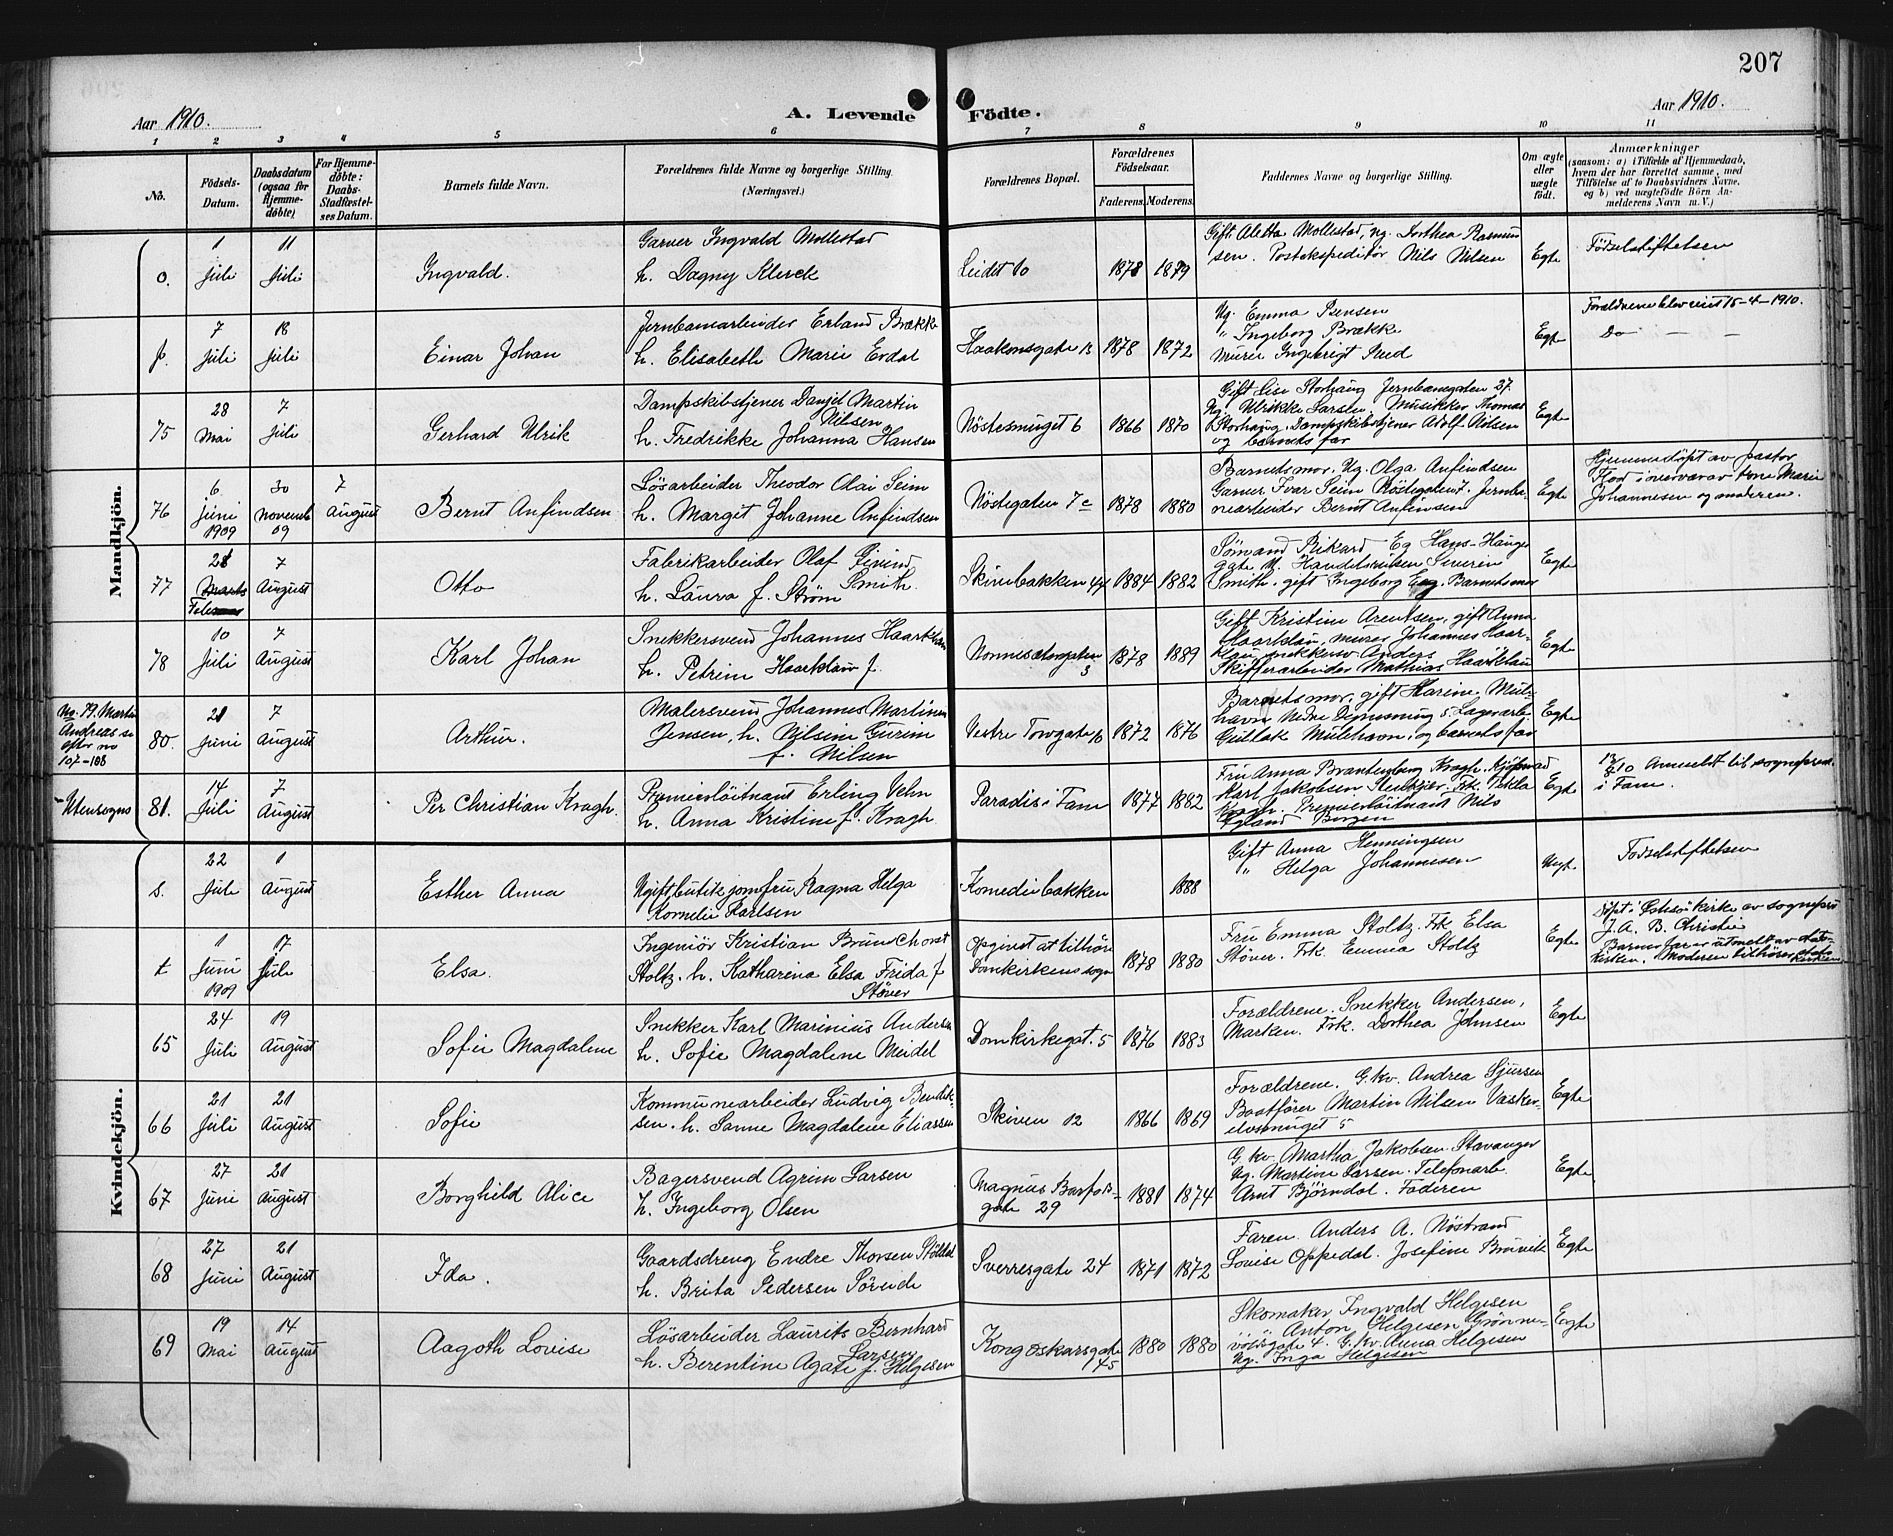 207
Aar 1910.
A. Levende Födte.
Aar 1910.
1 2 3 4 5 6 7 8 9 10 11
No.
Födsels-Datum.
Daabsdatum (ogsaa for Hjemme-döbte)
For Hjemme-döbte: Daabs-Stadfæstel-ses Datum.
Barnets fulde Navn.
Forældrenes fulde Navne og borgerlige Stilling. (Næringsvei.)
Forældrenes Bopæl.
Forældrenes Födselsaar.
Faderens. Moderens.
Faddernes Navne og borgerlige Stilling.
Om ægte eller uægte födt.
Anmærkninger
(saasom: a) i Tilfælde af Hjemmedaab, hvem der har forrettet samme, med Tilföielse af to Daabsvidners Navne, og b) ved uægtefödte Börn An-melderens Navn m. V.)
Mandkjön.
o. 1 Juli 11 Juli Ingvald. Garver Ingvald Mollestad
h. Dagny Klerck Leidet 10 1878 1879
Gift Aletta Mollestad, ug. Dorthea Rasmus
sen. Postekspeditör Nils Nilsen Egte Fødselstiftelsen
p. 7 Juli 18 Juli Einar Johan Jernbanearbeider Erland Brække
h. Elisabeth Marie Erdal Haakonsgate 13 1878 1872
Ug. Emma
" Ingeborg Brække
Murer Ingebrigt Egte Forældrene blev viet 15-4-1910.
Do - -
75 28 Mai 7 Juli Gerhard Ulrik Dampskibstjener Daniel Martin
Nilsen
h. Fredrikke Johanna Hansen Nöstesmuget 6 1866 1870
Gift Lise Storhaug Jernbanegaten 27.
Ug. Ulrikke Larsen. Musikker Thomas
Storhaug. Dampskibstjener Adolf Nilsen
og barnets far Egte
76 6 Juni 1909 30 Novemb 09 7 August Bernt Anfindsen Løsarbeider Theodor Olai Seim
h. Margit Johanne Anfindsen Nöstegaten 7c 1878 1880
Barnets mor. Ug. Olga Anfindsen
Garver Ivar Seim Nöstegaten 7. Jernba
nearbeider Bernt Anfinsen Egte Hjemmedöpt av pastor
i nærvær av Marie
Johannesen og moderen.
77 28 Marts 7 August Otto Fabrikarbeider Olaf Eivind
Smith
h. Laura f. Ström Skivebakken 44 1884 1882
Sömand Rikard Eg Hans Hauges
gate
Smith. gift Ingeborg Eeg. Barnets mor Egte
78 10 Juli 7 August Karl Johan Snekkersvend Johannes Haarklau
h. Petrine Haarklau f. Nonnesætergaten 3 1878 1889
Gift Kristine Arentsen, gift Anna
Haarklau, murer Johannes Haar-
klau, snekkersv Anders
Skifferarbeider Mathias Haarklau Egte
No. 79. Martin
Andreas se
efter no
107-108
80. 21 Juni 7 August Arthur. Malersvend Johannes Martinus
Jensen, h. Nilsine Gurine
f. Nilsen Vestre Torvgate 16 1872 1876
Barnets mor, gift Marine Mul-
havn Nedre 5. Lagerarb.
Gullak Mulehavn, og barnets far Egte
Utensogns 81. 14 Juli 7 August Per Christian Kragh. Premierlöitnant Erling Vehn
h. Anna Kristine f. Kragh. Paradis i Fane 1877 1882
Fru Anna Brantenberg Kragh. Kjöpmand
Karl Jakobsen Stenkjer. Frk. Thekla
Kragh. Premierlöitnant Nils
Egeland Borgen Egte 12/8 10 Anmeldt til sogneprest
i Fane.
Kvindekjön.
s. 22 Juli 1 August Esther Anna Ugift butikjomfru Ragna Helga
Kornelie Karlsen Komediebakken 1888
Gift Anna Henningsen
" Helga Johannesen Uegt. Fødselstiftelsen
t 1 Juni 1909 17 Juli Elsa. Ingeniör Kristian Brunchorst
Stoltz. h. Katharina Elsa Frida f.
Stöver Opgivet at tilhöre
Domkirkens sogn 1878 1880
Fru Emma Stoltz. Frk Elsa
Stöver. Frk. Emma Stoltz Egte Döpt i kirke av sognepr.
J. A. B. Christie
Barnets far er utmeldt av stats-
kirken. Moderen tilhörer stats-
kirken
65 24 Juli 19 August Sofie Magdalene Snekker Karl Marinius Andersen
h. Sofie Magdalene Meidel Domkirkegat. 5 1876 1883
Forældrene. Snekker Andersen,
Marken. Frk. Dorthea Johnsen Egte
66 21 Juli 21 August Sofie Kommunearbeider Ludvig Bendik-
sen. h. Sanne Magdalene Eliassen Skiven 12 1866 1869
Forældrene. G.kv. Andrea Sjursen
Baatförer Martin Nilsen Vasker-
elvsmuget 5 Egte
67 27 Juni 21 August Borghild Alice Bagersvend Agrim Larsen
h. Ingeborg Olsen Magnus Barfods-
gate 29 1881 1874
G.kv. Martha Jakobsen Stavanger
Ug. Martine Larsen. Telefonarb.
Arnt Björndal. Faderen Egte
68 27 Juni 21 August Ida. Gaardsdreng Endre Thorsen
h. Brita Pedersen Sörende Sverresgate 24 1871 1872
Faren. Anders A. Nöstrand
Lovise Oppedal. Josefine Bruvik Egte
69 19 Mai 14 August Aagoth Lovise Løsarbeider Laurits Bernhard
Larsen
h. Berentine Agate f. Helgesen Kong Oskarsgate
45 1880 1880
Skomaker Ingvald Helgesen
Anton Helgesen Grönne-
voldsgate 4. G.kv. Anna Helgesen
Ug. Inga Helgesen Egte